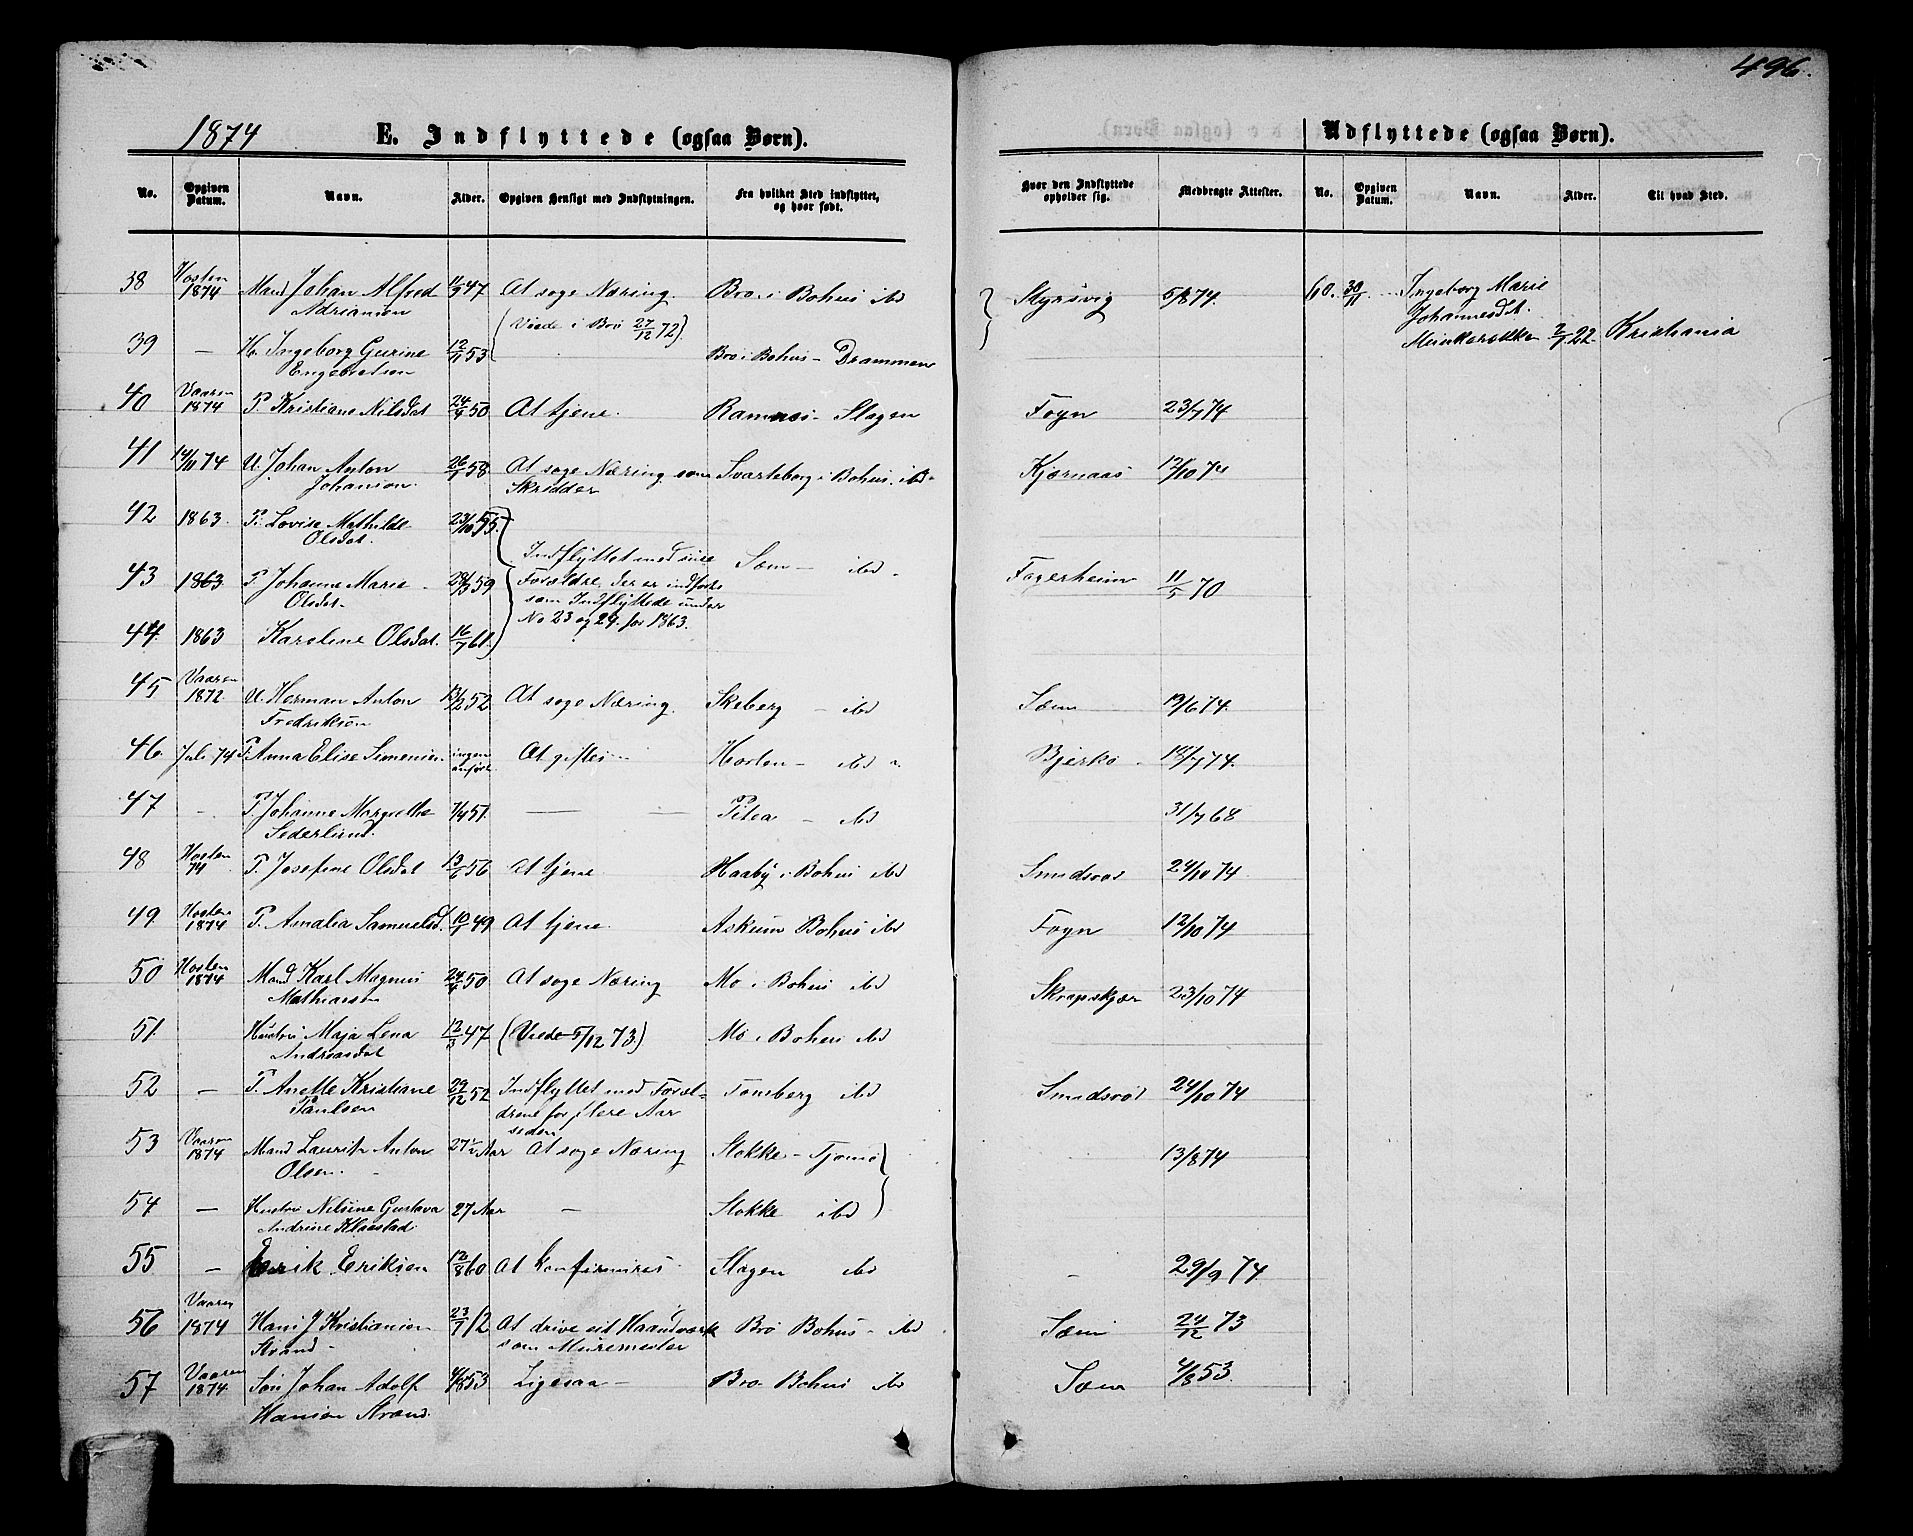 496.
1874 E. Indflyttede (ogsaa Børn). Udflyttede (ogsaa Børn).
No. Opgiven Datum. Navn. Alder. Opgiven Hensigt med Indflytningen. Fra hvilket Sted indflyttet, og hvor født. Hvor den Indflyttede opholder sig. Medbragte Attester. No. Opgiven Datum. Navn. Alder. Til hvad Sted.
38 Hosten 1874 Mand Johan Alfred At søge Næring. Bro i Bohus ibd Styrsvig 5/8 74. 60. 30/11 Ingeborg Marie
Adriansen (Viede i Bro 27/12 72). Johannesdt.
39 — H. Ingeborg Gurine 12/9 53 Bro i Bohus - Drammen 2/7 22 Kristiania
Engebretsen
40 Vaaren 1874 P. Kristiane Nilsdat 24/9 50 At tjene. Ramnes - Slagen Føyn 23/7 74
41 14/11 74 U. Johan Anton 26/5 58 At søge Næring som Svarteborg i Bohus. ibd. Kjærnaas 12/10 74
Johanson. Skrædder
42 1863. P. Lovise Mathilde 23/10 55.
Olsdat. Indflyttet med sine Sæm — ibd
43 1863 P. Johanne Marie 28/3 59 Forældre, der er indførte Fagerheim 11/5 70
Olsdat. som Indflyttede under
44 1863 Karoline Olsdat. 16/7 61. No 23 og 24 for 1863.
45 Vaaren 1872 U. Herman Anton 13/12 52 At søge Næring. Skeberg — ibd Sæm 19/6 74.
Fredriksøn
46 Juli 74 P. Anna Elise Simensen ingen anført At giftes Horten — ibd Bjerkø 18/7 74.
47 - P. Johanne Margrethe 7/4 51. — — Pitea — ibd 31/7 68
Sederlund.
48 Hosten 74 P. Josefine Olsdat 13/6 56 At tjene Haaby i Bohus ibd Smidsrød 24/10 74
49 Hosten 1874 P. Amalia Samuelsd. 10/1 49 At tjene. Askum Bohus ibd Føyn 12/10 74
50 Hosten 1874 Mand Karl Magnus 24/4 50 At søge Næring Mo i Bohus ibd 23/10 74
Mathiasen
51. Hustru Maja Lena 12/3 47 (Viede 5/12 73) Mo i Bohus ibd
Andreasdat
52 — P. Anette Kristiane 29/12 52 Indflyttet med Foræl- Tønsberg ibd Smidsrød 24/10 74
Paulsen drene for flere Aar
siden
53 Vaaren 1874 Mand Laurits Anton 27 1/2 Aar At søge Næring Stokke - Tjømø 13/8 74
Olsen.
54 — Hustru Nilsine Gustava 27 Aar — Stokke ibd
Andrine Klaastad
55 — Erik Eriksen 12/8 60 At konfirmeres Slagen ibd - 29/9 74
56 Vaaren 1874 Hans J Kristiansen 23/7 12 At drive sit Haandværk Bro Bohus - ibd Sæm 24/12 73
Strand som Muremester
57 Vaaren 1874 Søn Johan Adolf 4/8 53 Ligesaa - Bro Bohus ibd Sæm 4/8 53.
Hansen Strand.